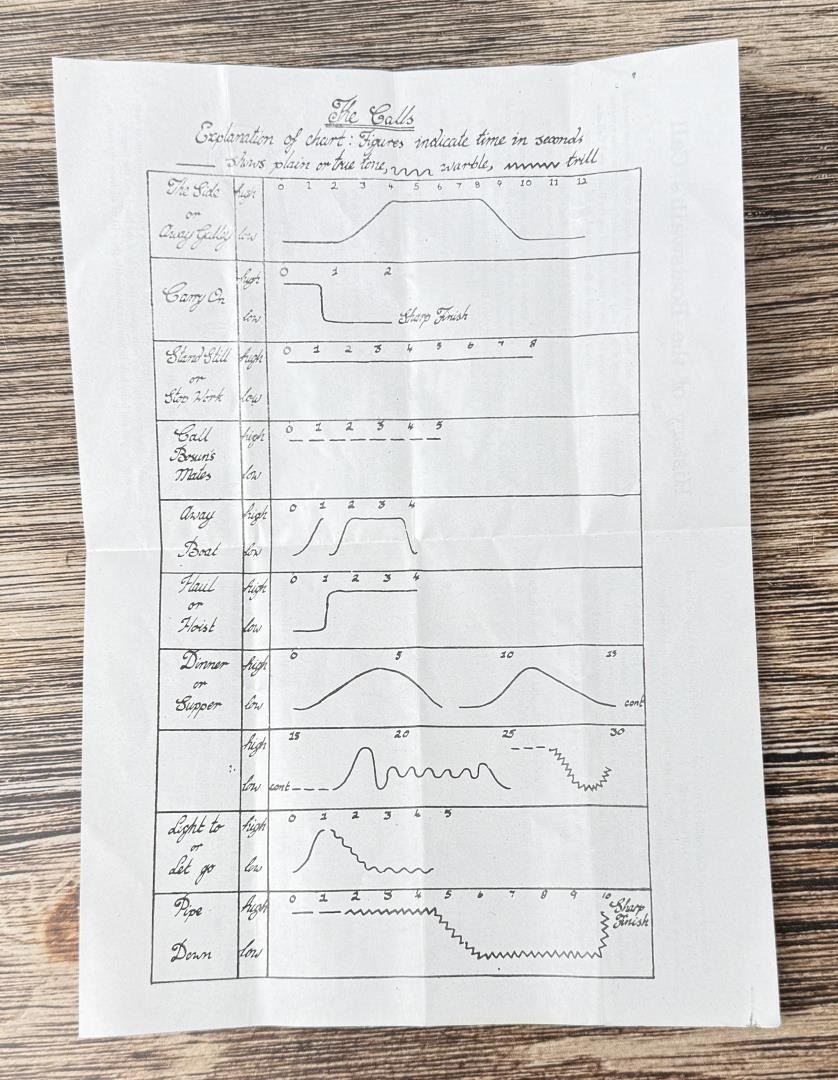 The Calls
Explanation of chart: Figures indicate time in seconds
shows plain or true tone, warble, trill
The Side high 0 1 2 3 4 5 6 7 8 9 10 11 12
or
Away Galley low
high 0 1 2
Carry On
low Sharp Finish
Stand Still high 0 1 2 3 4 5 6 7 8
or
Stop Work low
Call high 0 1 2 3 4 5
Bosun's
Mates low
Away high 0 1 2 3 4
Boat low
Haul high 0 1 2 3 4
or
Hoist low
Dinner high 0 5 10 15
or
Supper low cont
high 15 20 25 30
low cont
Light to high 0 1 2 3 4 5
or
Let go low
Pipe high 0 1 2 3 4 5 6 7 8 9 10 Sharp
Finish
Down low